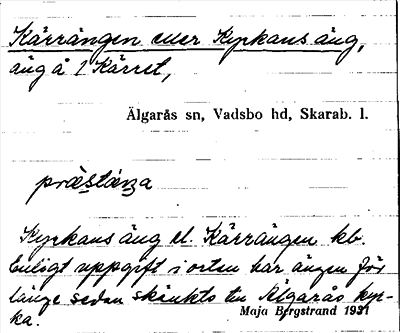 Kärrängen eller Kyrkans äng,
äng å 1 Kärret,
Älgarås sn, Vadsbo hd, Skarab. l.
præstæŋa
Kyrkans äng el. Kärrängen kb.
Enligt uppgift i orten har ängen för
länge sedan skänkts till Älgarås kyr-
ka.
Maja Bergstrand 1931